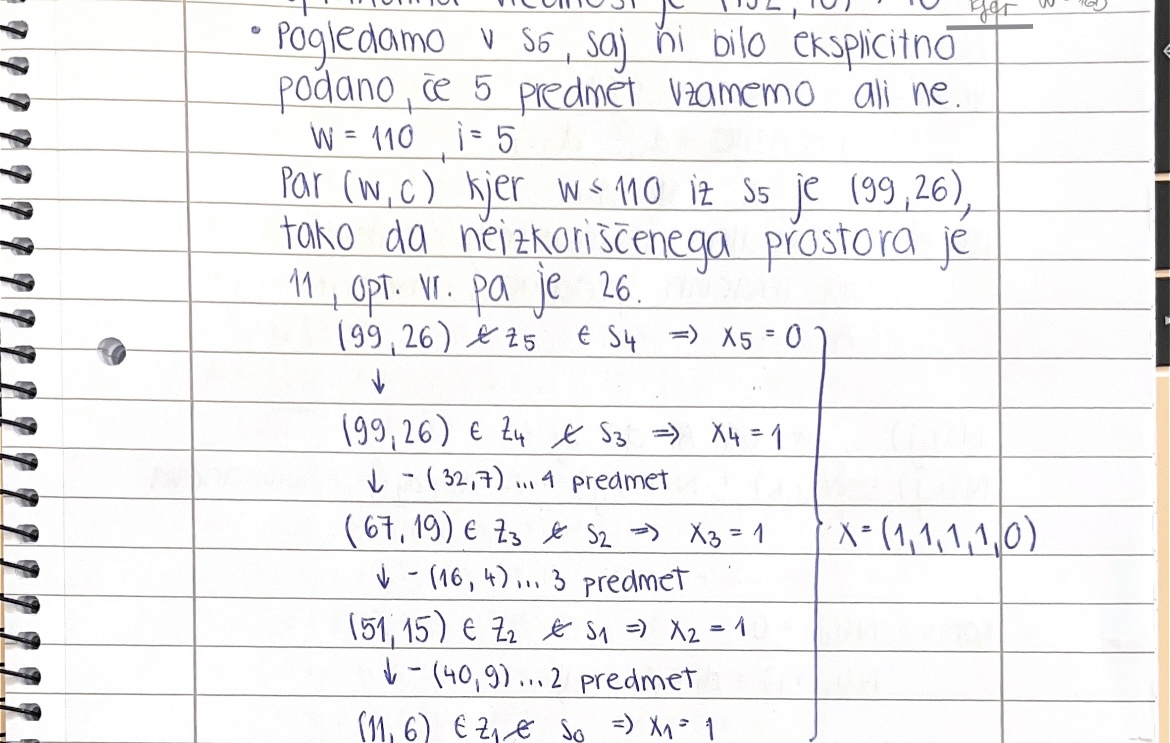 je (152, 10)
kjer w = 160
• Pogledamo v S5, saj ni bilo eksplicitno
podano, če 5 predmet vzamemo ali ne.
W = 110, i = 5
Par (w, c) kjer w ≤ 110 iz S5 je (99, 26),
tako da neizkoriščenega prostora je
11, opt. vr. pa je 26.
(99, 26) ∉ Z5 ∈ S4 => X5 = 0
↓
(99, 26) ∈ Z4 ∉ S3 => X4 = 1
↓ - (32, 7) ... 4 predmet
(67, 19) ∈ Z3 ∉ S2 => X3 = 1
X = (1, 1, 1, 1, 0)
↓ - (16, 4) ... 3 predmet
(51, 15) ∈ Z2 ∉ S1 => X2 = 1
↓ - (40, 9) ... 2 predmet
(11, 6) ∈ Z1 ∉ S0 => X1 = 1